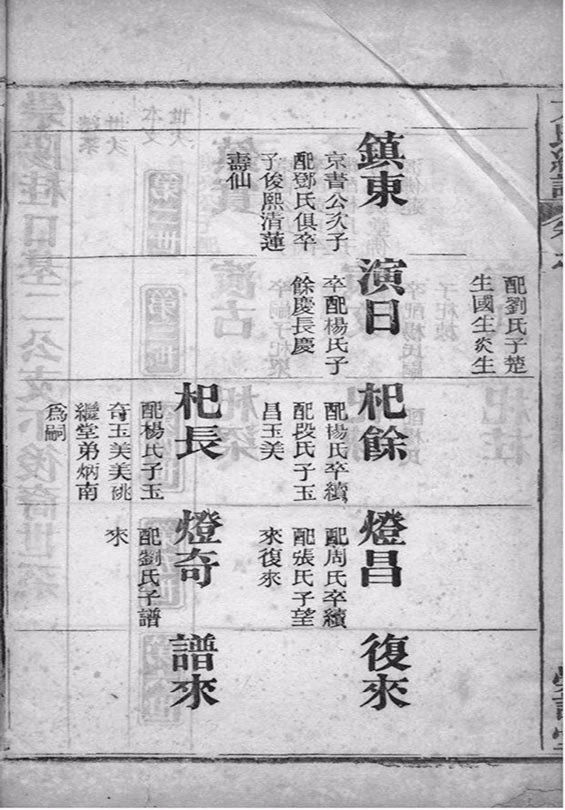 配劉氏子楚
生國生炎生
鎮東
京書公次子
配鄧氏俱卒
子俊熙清蓮
壽仙
演日
卒配楊氏子
餘慶長慶
杞餘
配楊氏卒續
配段氏子玉
昌玉美
燈昌
配周氏卒續
配張氏子望
來復來
復來
杞長
配楊氏子玉
奇玉美美祧
繼堂弟炳南
爲嗣
燈奇
配劉氏子譜
來
譜來